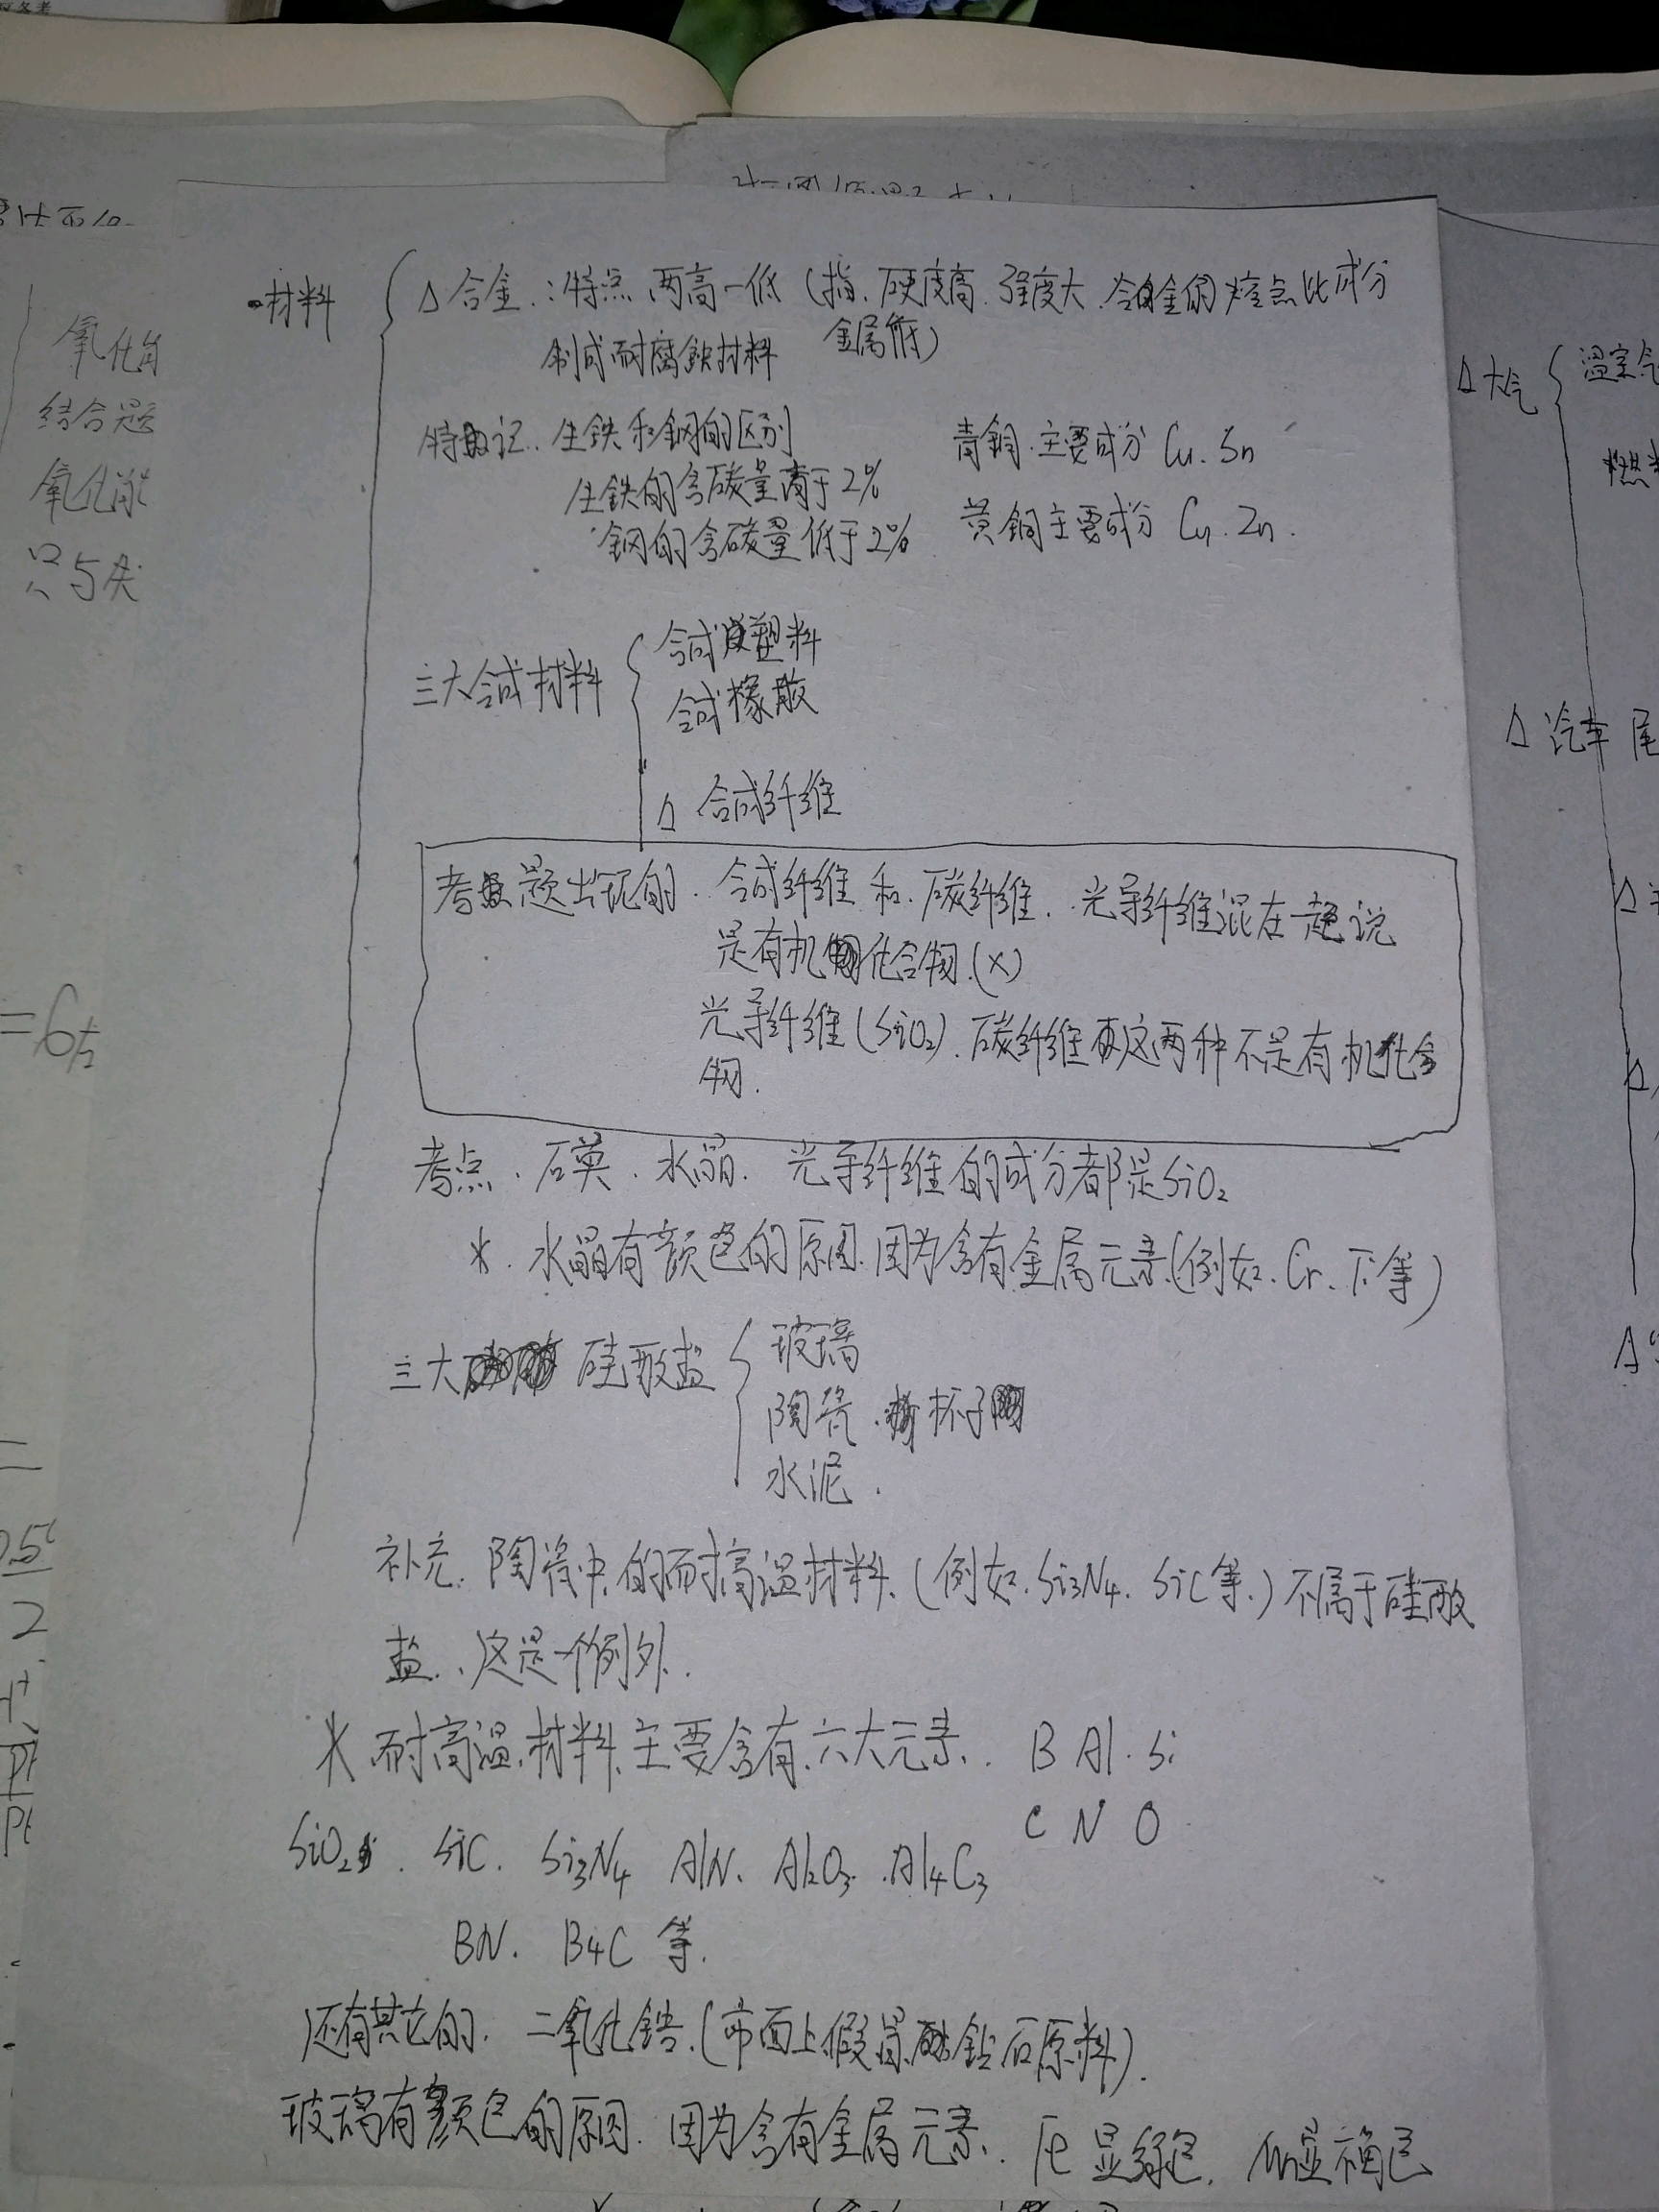 材料
△合金:特点 两高一低(指、硬度高、强度大、合金的熔点比成分
金属低)
制成耐腐蚀材料
特别记:生铁和钢的区别
生铁的含碳量高于2%
钢的含碳量低于2%
青铜.主要成分 Cu.Sn
黄铜主要成分 Cu.Zn.
三大合成材料
合成塑料
合成橡胶
△ 合成纤维
考题出现的.合成纤维 和.碳纤维.光导纤维混在一起说
是有机化合物.(×)
光导纤维(SiO₂).碳纤维这两种不是有机化合
物.
考点.石英.水晶.光导纤维的成分都是SiO₂
*.水晶有颜色的原因.因为含有金属元素(例如.Cr、等)
三大 硅酸盐
玻璃
陶瓷.杯子
水泥.
补充.陶瓷中.的耐高温材料.(例如.Si₃N₄.SiC等.)不属于硅酸
盐.,这是一个例外.
* 耐高温.材料.主要含有.六大元素. B Al.Si
C N O
SiO₂. SiC. Si₃N₄ AlN. Al₂O₃.Al₄C₃
BN. B4C 等.
还有其它的.二氧化锆.(市面上假冒钻石原料).
玻璃有颜色的原因.因为含有金属元素.Fe 显绿色.显褐色
△大气
温室气
燃料
△ 汽车 尾
氧化
结合题
氧化
只与
=6
2